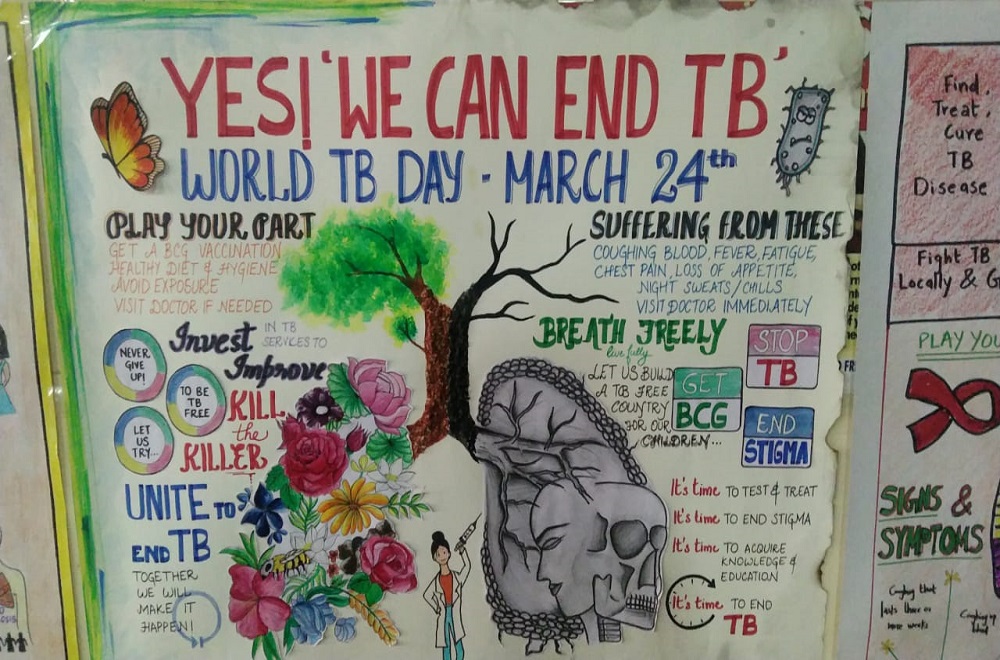 YES! 'WE CAN END TB'
WORLD TB DAY - MARCH 24th
PLAY YOUR PART
GET A BCG VACCINATION
HEALTHY DIET & HYGIENE
AVOID EXPOSURE
VISIT DOCTOR IF NEEDED
SUFFERING FROM THESE
COUGHING BLOOD, FEVER, FATIGUE,
CHEST PAIN, LOSS OF APPETITE,
NIGHT SWEATS/CHILLS
VISIT DOCTOR IMMEDIATELY
Invest IN TB
SERVICES TO
Improve
NEVER
GIVE
UP!
TO BE
TB
FREE
LET
US
TRY...
KILL
the
KILLER
UNITE TO
END TB
TOGETHER
WE WILL
MAKE IT
HAPPEN!
BREATH FREELY
live fully
LET US BUILD
A TB FREE
COUNTRY
FOR OUR
CHILDREN...
GET
BCG
STOP
TB
END
STIGMA
It's time TO TEST & TREAT
It's time TO END STIGMA
It's time TO ACQUIRE
KNOWLEDGE &
EDUCATION
It's time TO END
TB
Find,
Treat,
Cure
TB
Disease
Fight TB
Locally & G
PLAY YOU
SIGNS &
SYMPTOMS
Coughing that
lasts three or
more weeks
Coughing up